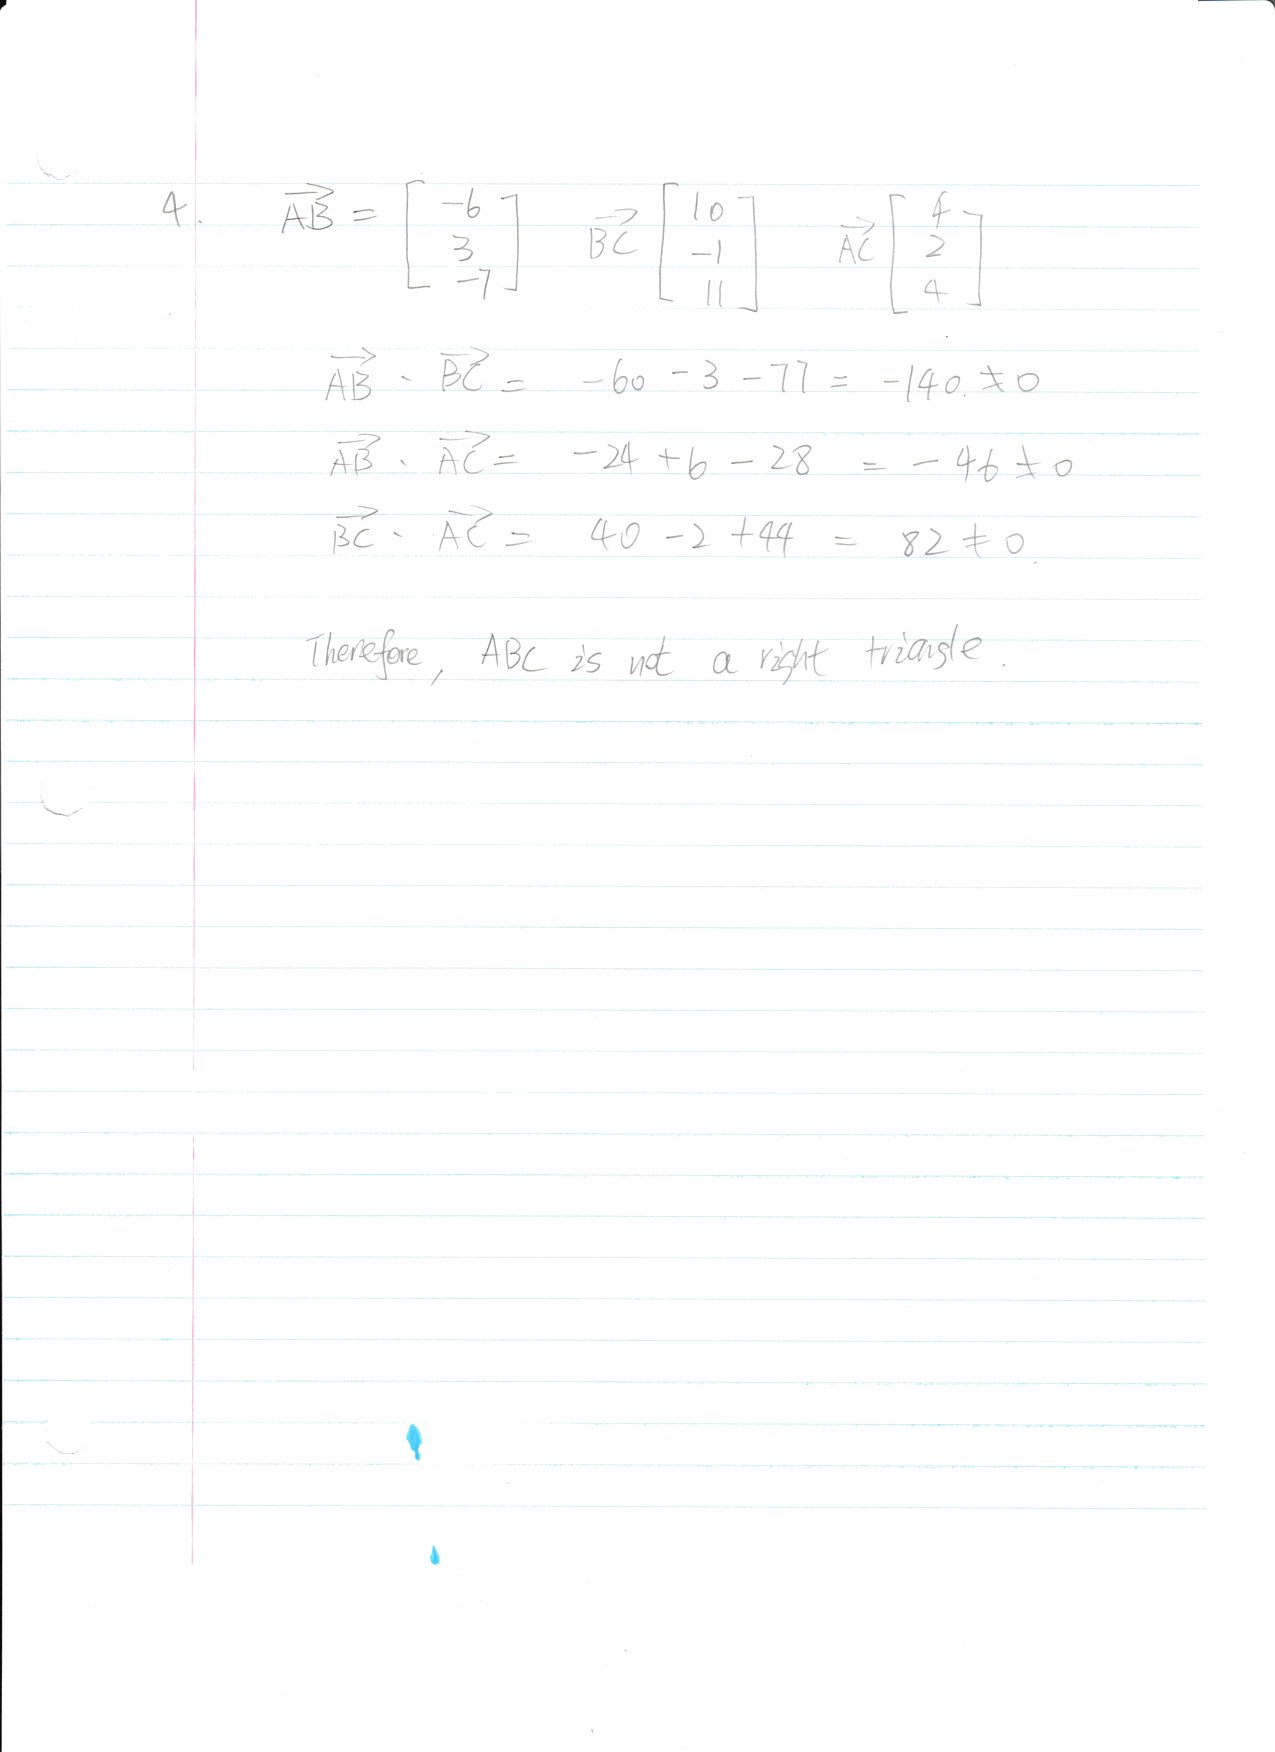 4. AB⃗ = [-6 3 -7] BC⃗ [10 -1 11] AC⃗ [4 2 4]
AB⃗ · BC⃗ = -60 - 3 - 77 = -140. ≠ 0
AB⃗ · AC⃗ = -24 + 6 - 28 = -46 ≠ 0
BC⃗ · AC⃗ = 40 - 2 + 44 = 82 ≠ 0.
Therefore, ABC is not a right triangle.